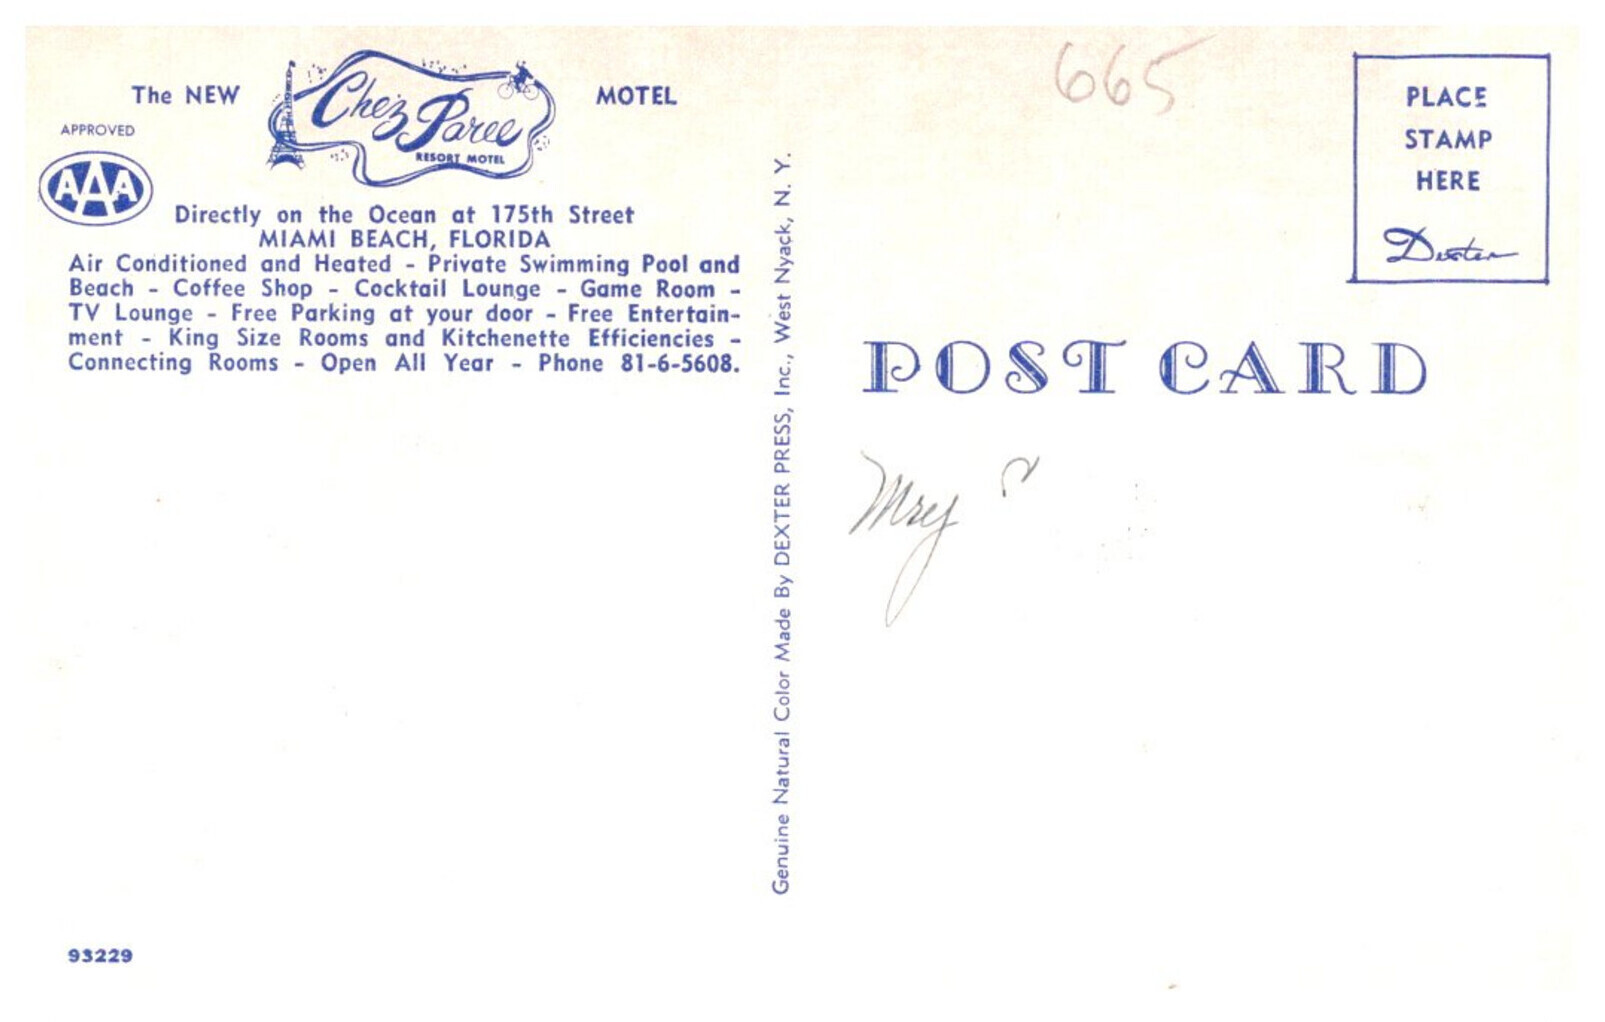 The NEW Chez Paree MOTEL
RESORT MOTEL
APPROVED
AAA
Directly on the Ocean at 175th Street
MIAMI BEACH, FLORIDA
Air Conditioned and Heated - Private Swimming Pool and
Beach - Coffee Shop - Cocktail Lounge - Game Room -
TV Lounge - Free Parking at your door - Free Entertain-
ment - King Size Rooms and Kitchenette Efficiencies -
Connecting Rooms - Open All Year - Phone 81-6-5608.
93229
Genuine Natural Color Made By DEXTER PRESS, Inc., West Nyack, N. Y.
665
PLACE
STAMP
HERE
Dexter
POST CARD